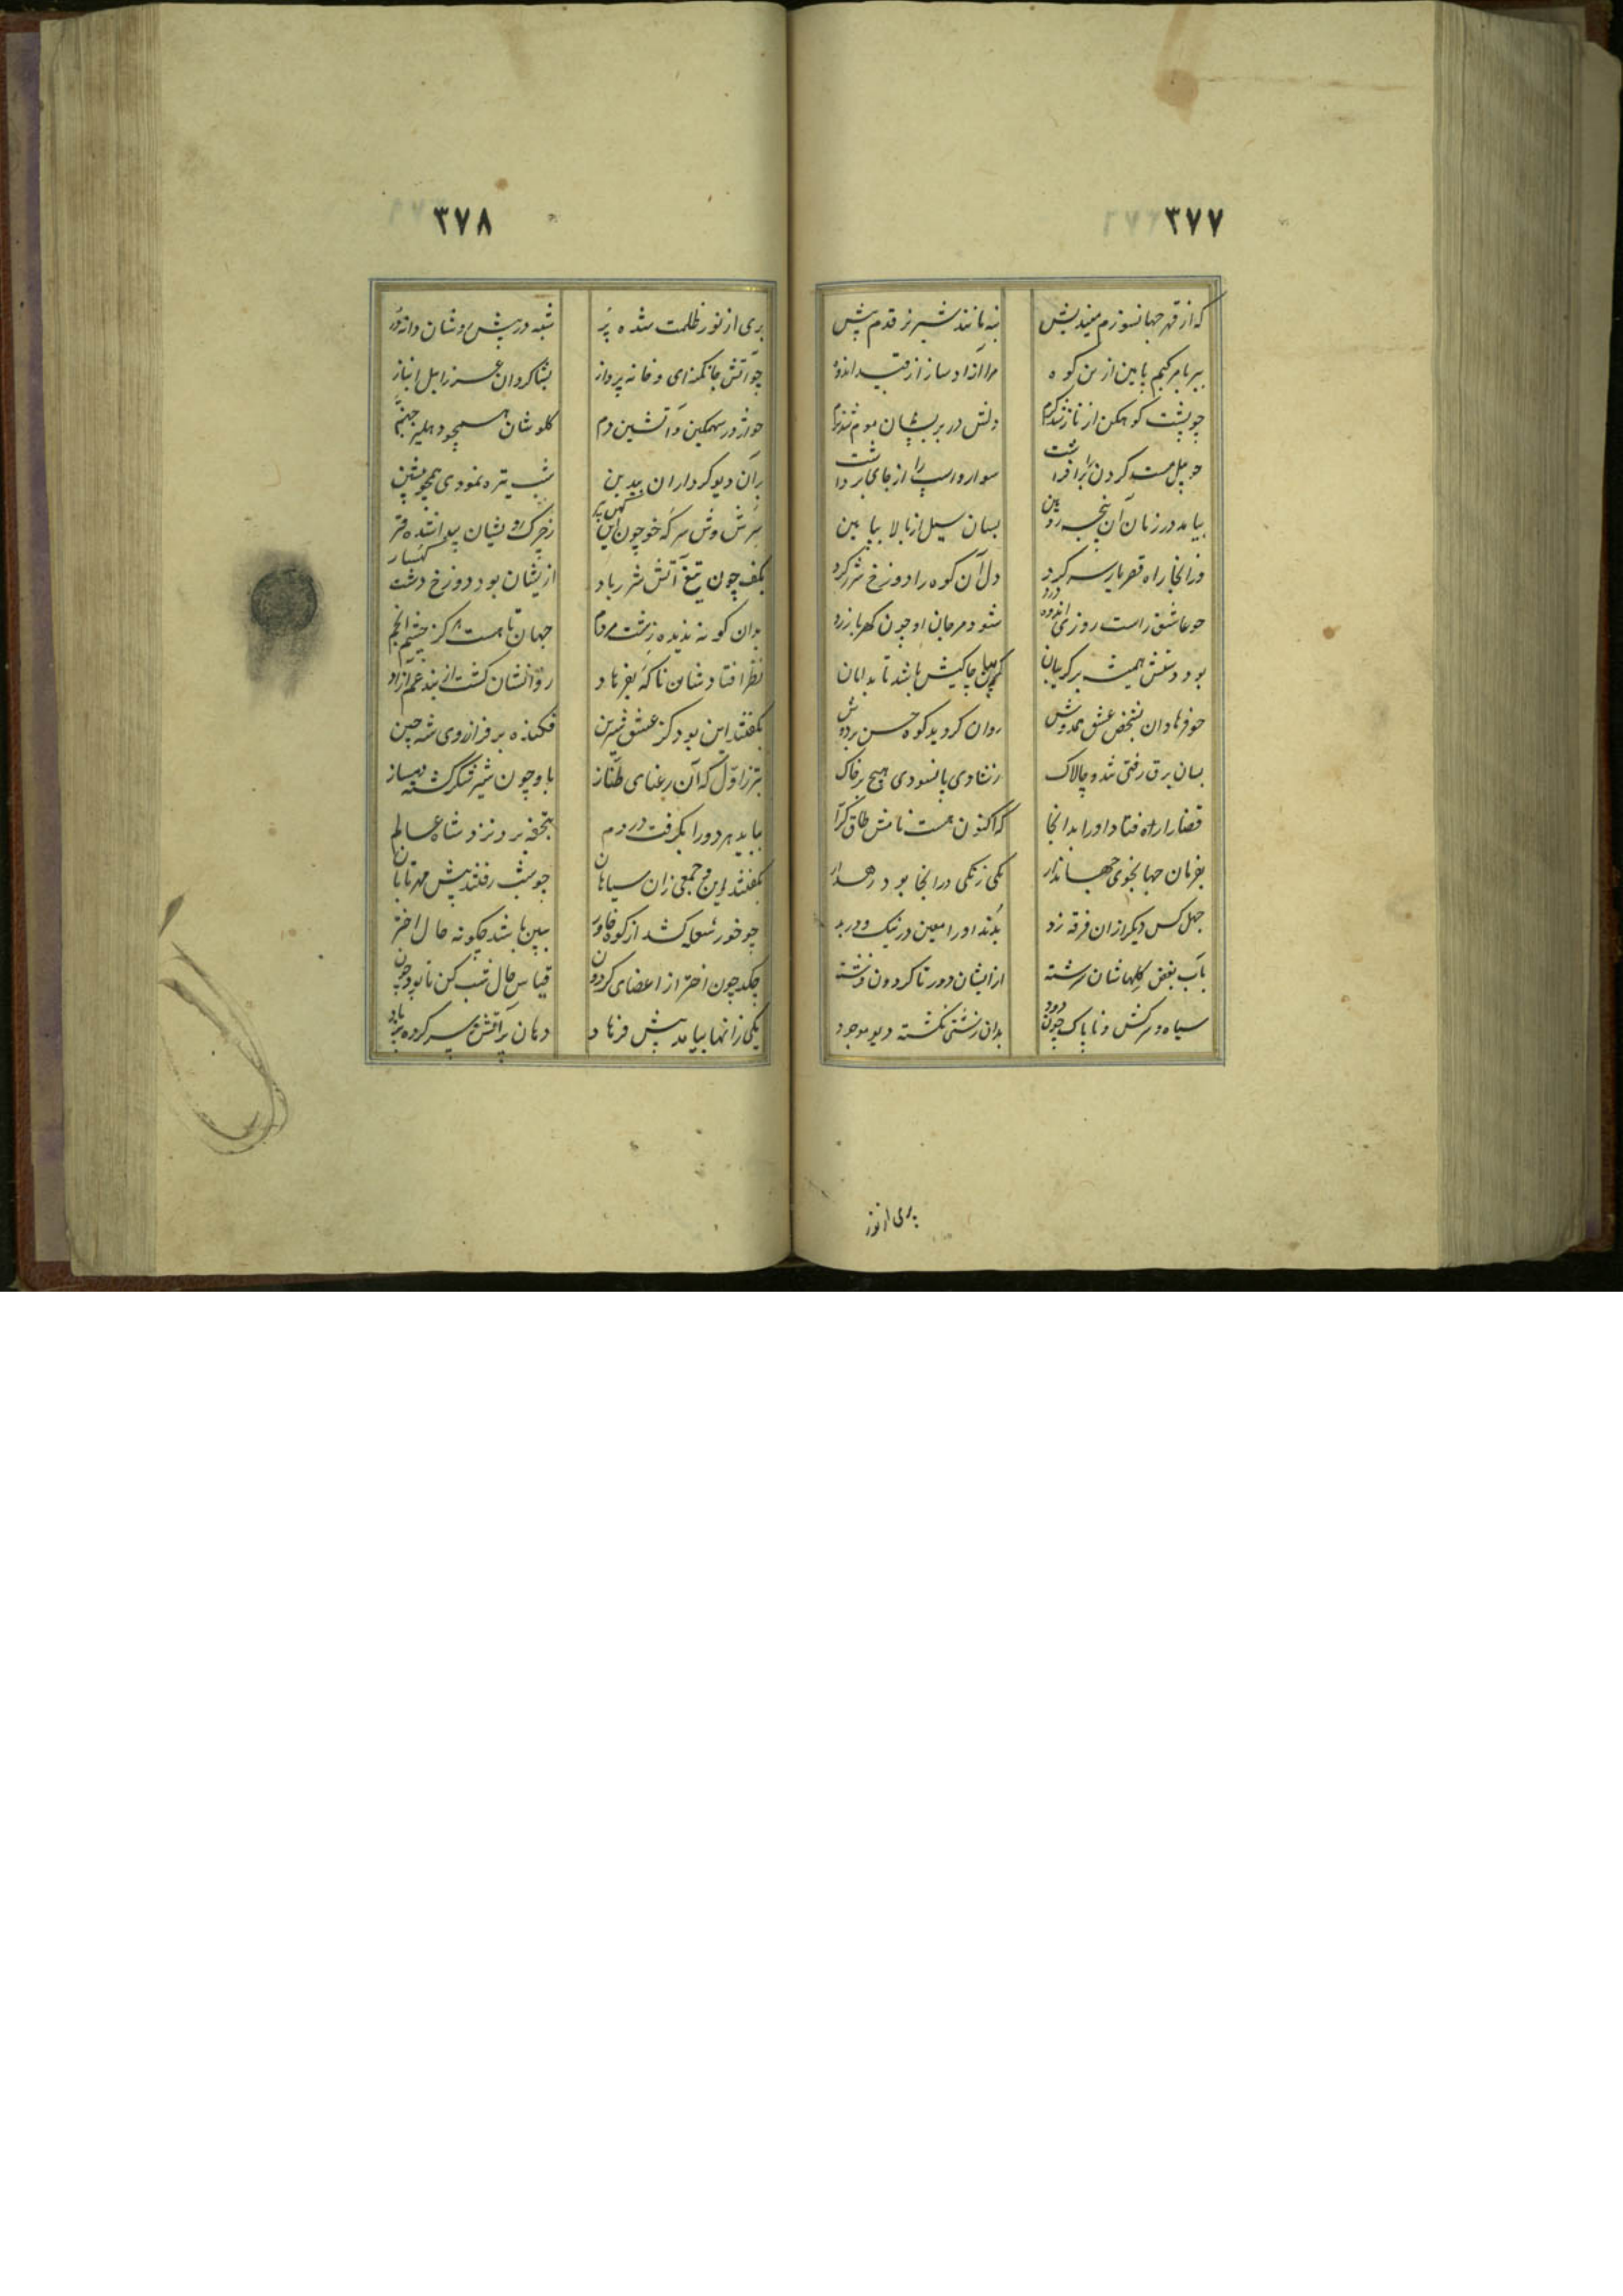 ۳۷۷
که از قهر جهانسوزم میندیش
بنه مانند شیر نر قدم پیش
ببر بامرکبم پایین ازین کوه
مرا آزاد ساز از قید اندوه
چو پشت کوهکن از ناز شد گرم
دلش در بر بسان موم شد نرم
چو پیل مست گردن را برافراشت
سوار و اسپ را از جای برداشت
بیامد در زمان آن رنج بین
بسان سیل از بالا بپایین
وزانجا راه قصر یار سر کرد
دل آن کوه را دوزخ شرر کرد
چو عاشق راست روزی اندوه و درد
شود مرجان او چون کهربا زرد
بود دستش همیشه بر گریبان
گریبان چاکیش باشد تا بدامان
چو فرهاد آن بشخص عشق همدوش
روان گردید کوه حسن بر دوش
بسان برق رفتی تند و چالاک
ز شادی پا نسودی هیچ بر خاک
قضا را راه فتاد او را بدانجا
که اکنون هست نامش طاق گرا
بفرمان جهانجوی جهاندار
یکی زنگی درانجا بود رهدار
چهل کس دیگر از آن فرقه زد
بدند او را معین در نیک و در بد
بآب بغض گلهاشان سرشته
از ایشان دور تا گردون فرشته
سیاه و سرکش و ناپاک چون دود
بدان زشتی نگشته دیو موجود
پری از نور
۳۷۸
پری از نور ظلمت شده پر
شبه در پیش روشان دانه در
چو آتش جانگزای و خانه پرداز
بشاگردان عزرایل انباز
چو اژدر سهمگین و آتشین دم
گلوشان همچو دهلیز جهنم
بر آن دیوکرداران بیدین
شب تیره نمودی همچو پشین
سرش وش سرکه خو چون این کهن پیر
ز چرک رویشان پیدا شده قیر
بکف چون تیغ آتش شرربار
از ایشان بود دوزخ دشت و کهسار
بدان گونه ندیده زشت مردم
جهان تا هست هرگز چشم انجم
نظر افتادشان ناگه بفرهاد
روانشان گشت از بند غم آزاد
بگفتند این بود کز عشق شیرین
فکنده بر فراز روی شه چین
بتر ز اول که آن رعنای طناز
باو چون شیر شکر گشته دمساز
بباید هر دو را بگرفت در دم
بتحفه برد نزد شاه عالم
بگفتند این و جمعی زان سیاهان
چو شب رفتند پیش مهر تابان
چو خور شعله کشد از کوه خاور
ببین باشد چگونه حال اختر
چکد چون اختر از اعضای گردون
قیاس حال شب کن تا بود چون
یکی زانها بیامد پیش فرهاد
دهان پر آتش سر کرده پرباد